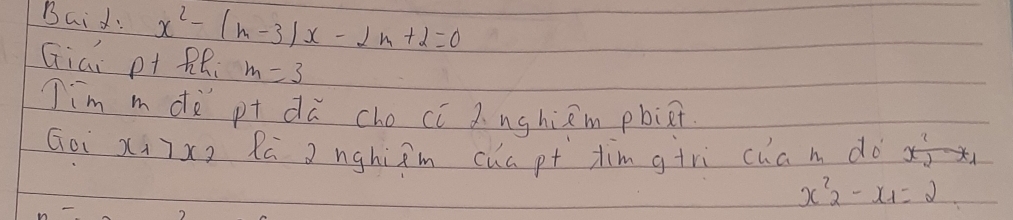 Bài 2: x² - (m-3)x - 2m+2=0
Giải pt khi m=3
Tìm m để pt đã cho có 2 nghiệm pbiệt.
Gọi x₁, x₂ là 2 nghiệm của pt tìm gtrị của m để
x²₂ - x₁ = 2